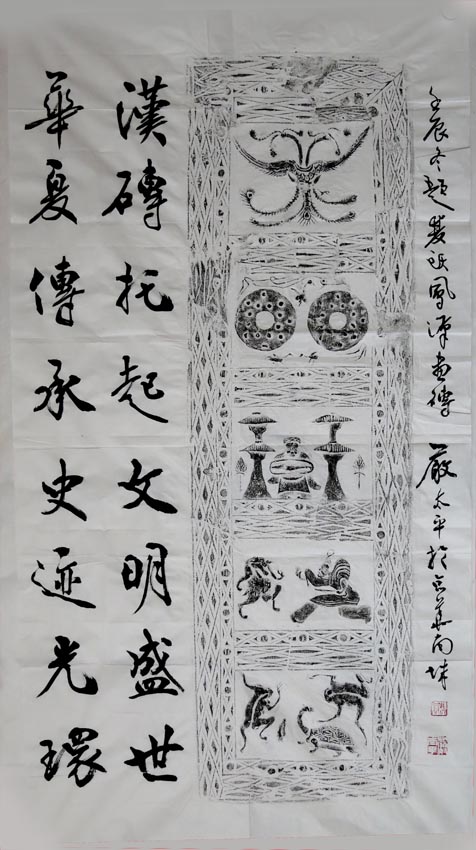 壬辰冬題鳳漢畫磚 嚴太平於京華南城
漢磚托起文明盛世
華夏傳承史迹光環